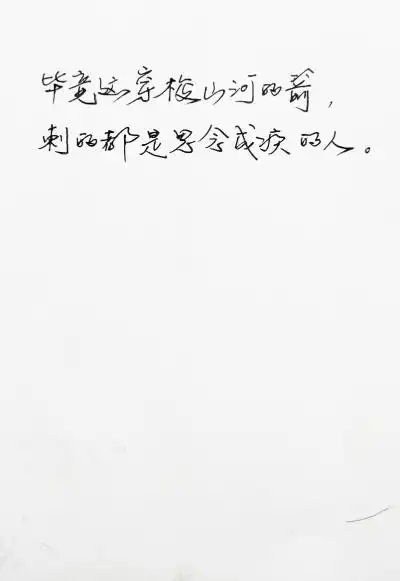 毕竟这穿梭山河的箭，
刺的都是思念成疾的人。